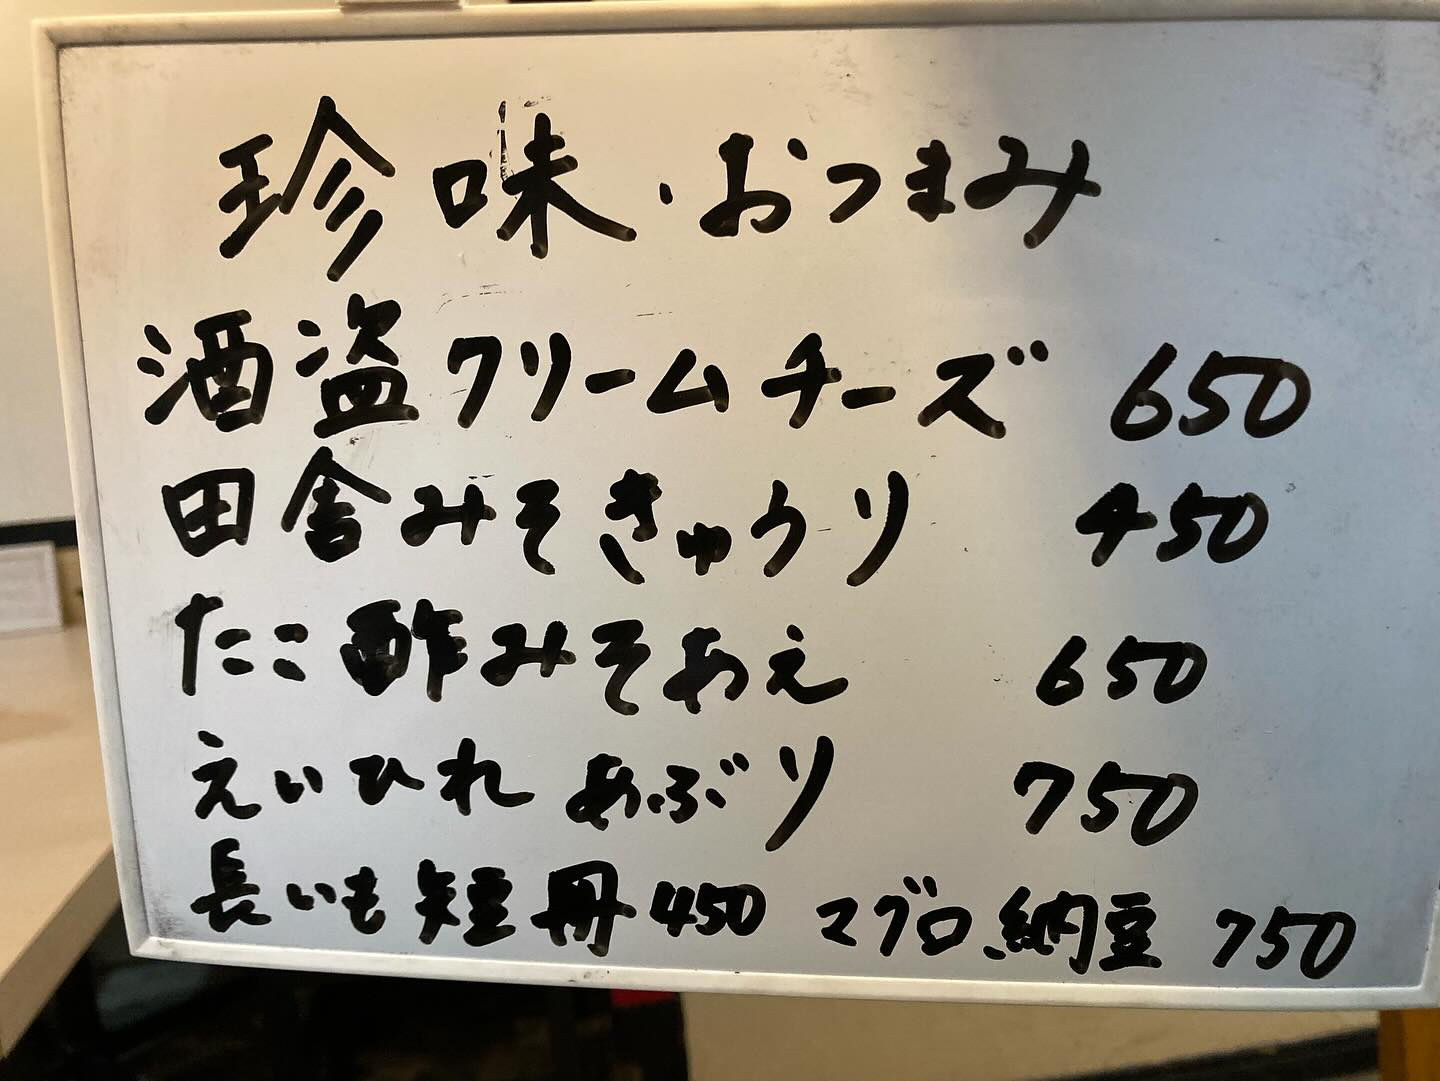 珍味・おつまみ
酒盗クリームチーズ 650
田舎みそきゅうり 450
たこ酢みそあえ 650
えいひれあぶり 750
長いも短冊450 マグロ納豆 750